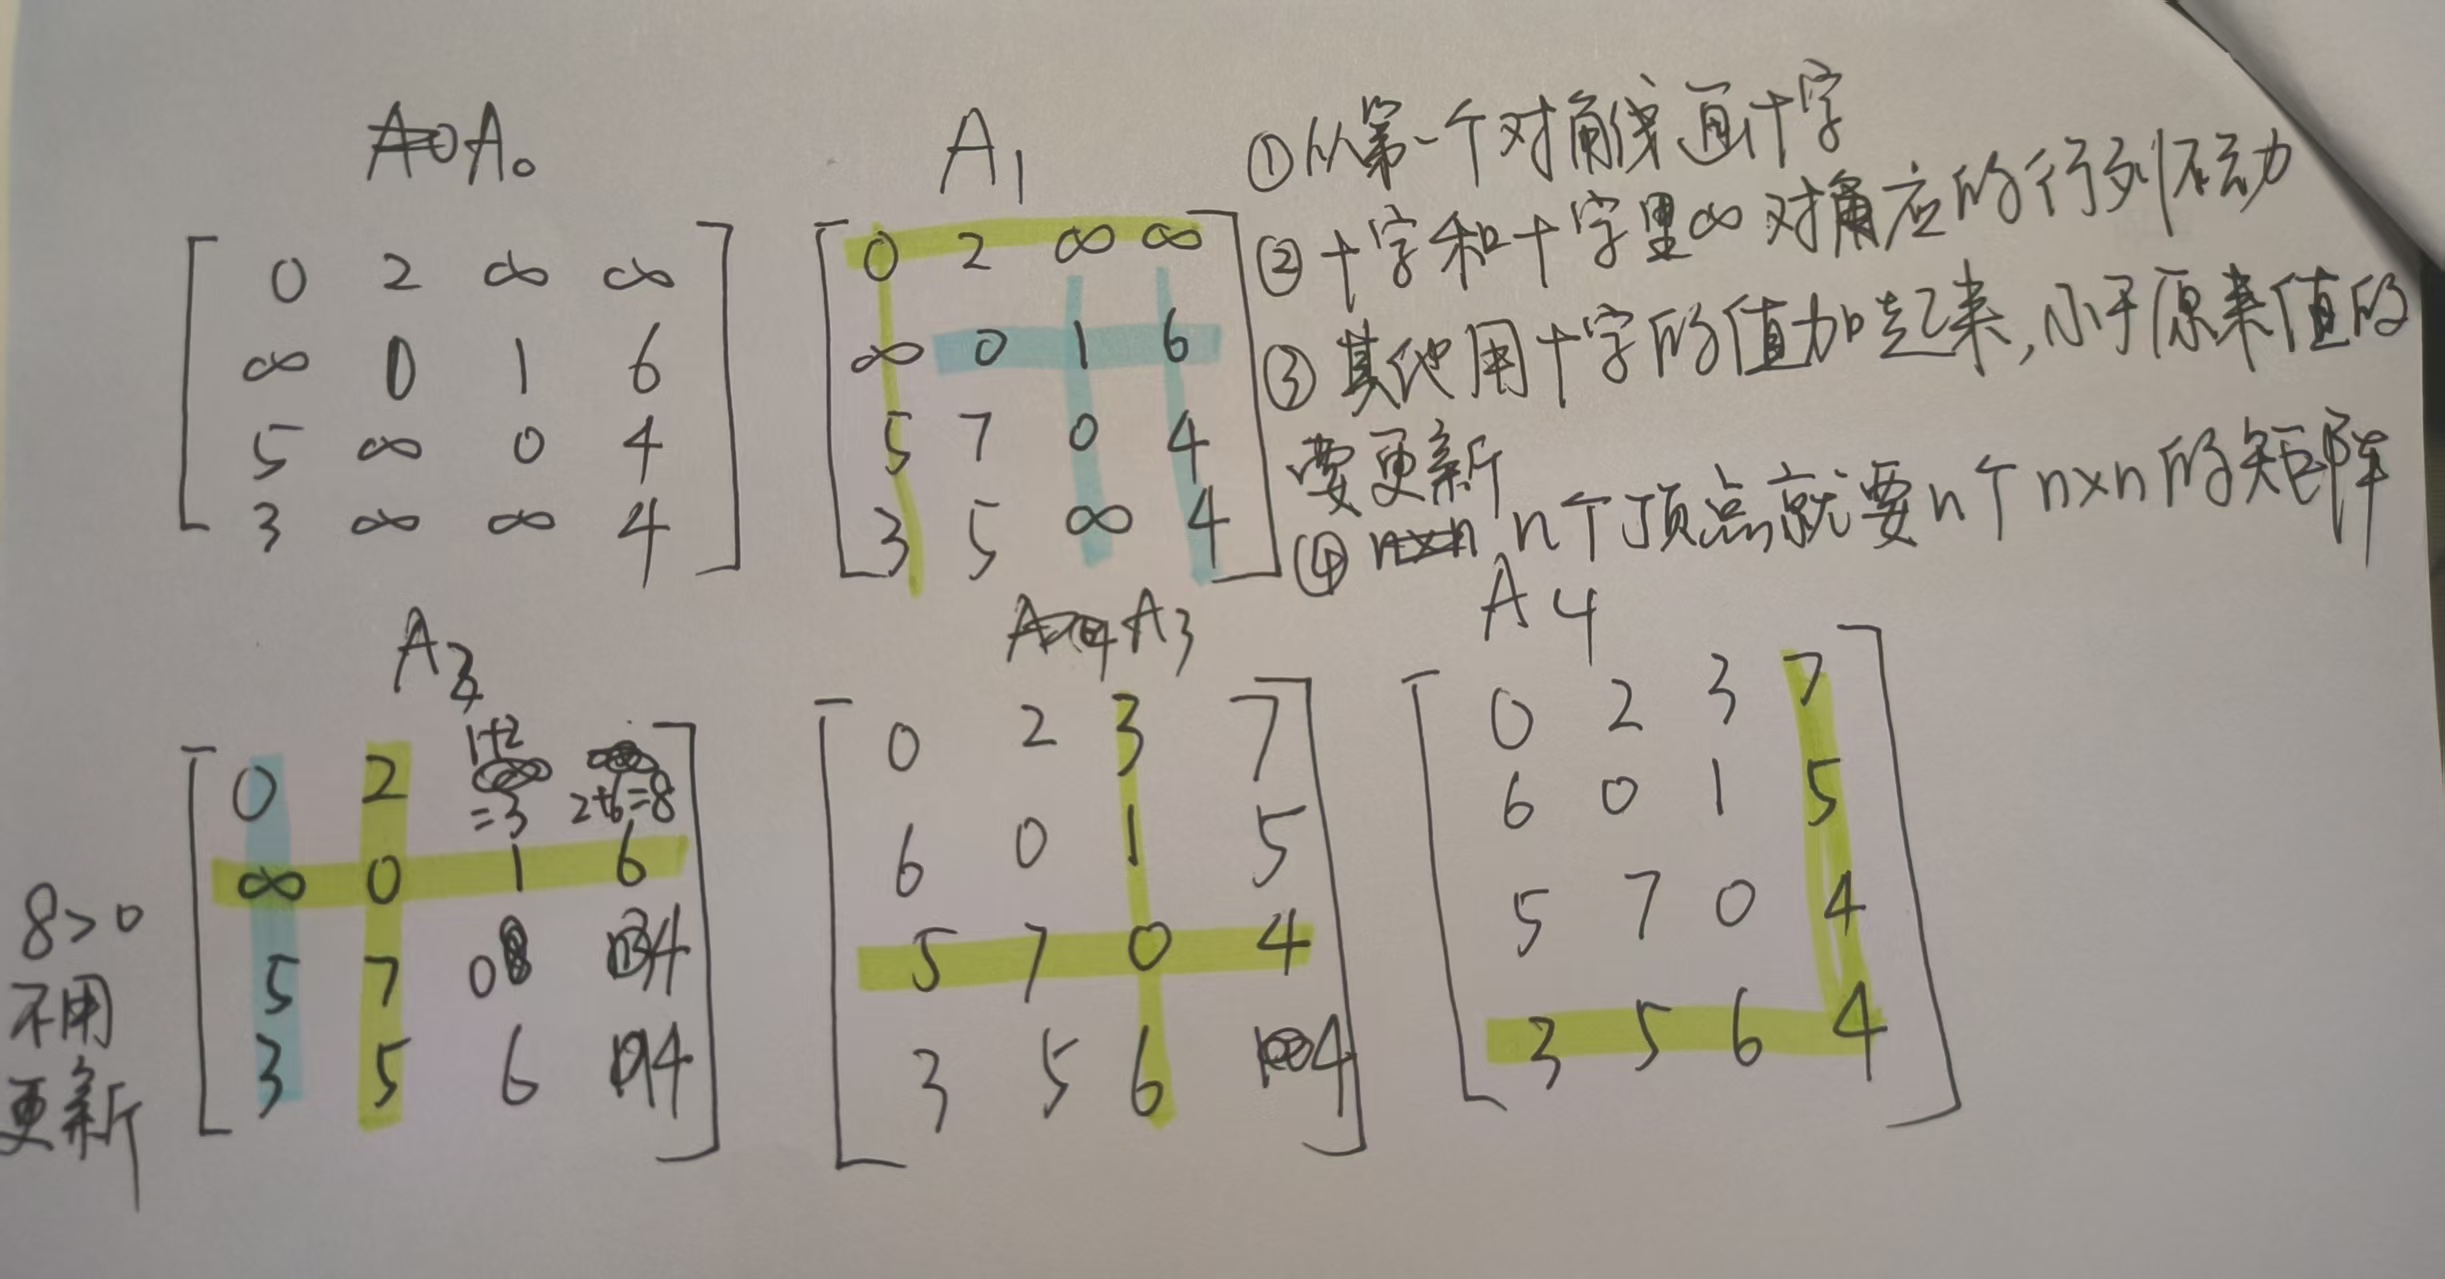 A₀ A₁
0 2 ∞ ∞
∞ 0 1 6
5 ∞ 0 4
3 ∞ ∞ 4
0 2 ∞ ∞
∞ 0 1 6
5 7 0 4
3 5 ∞ 4
①从第一个对角线画十字
②十字和十字里∞对应的行列不动
③其他用十字的值加起来,小于原来值的
要更新
④ n个顶点就要n个n×n的矩阵
A₂ A₃ A4
1+2
0 2 =3 2+6=8
∞ 0 1 6
5 7 0 4
3 5 6 4
8>0
不用
更新
0 2 3 7
6 0 1 5
5 7 0 4
3 5 6 4
0 2 3 7
6 0 1 5
5 7 0 4
3 5 6 4